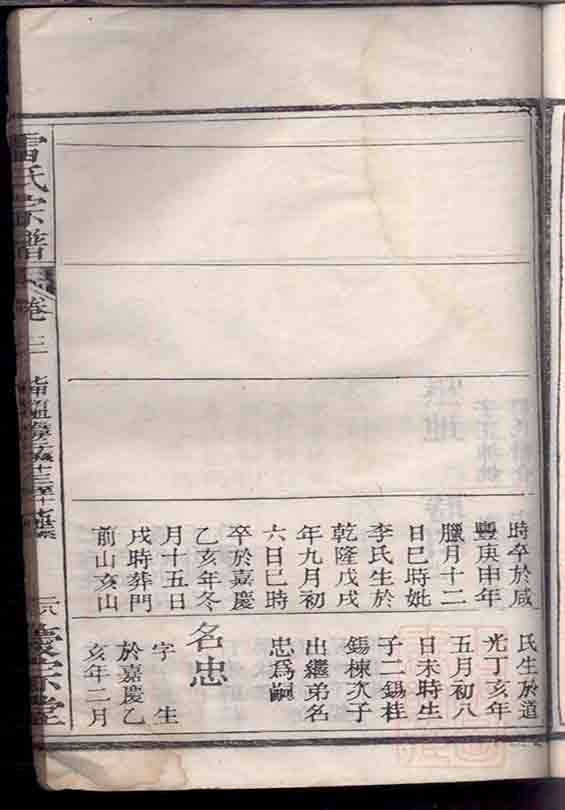 時卒於咸
豐庚申年
臘月十二
日巳時妣
李氏生於
乾隆戊戌
年九月初
六日巳時
卒於嘉慶
乙亥年冬
月十五日
戌時葬門
前山亥山
氏生於道
光丁亥年
五月初八
日未時生
子二錫桂
錫棟次子
出繼弟名
忠爲嗣
名忠
字 生
於嘉慶乙
亥年二月
雷氏宗譜
卷
慶宗堂